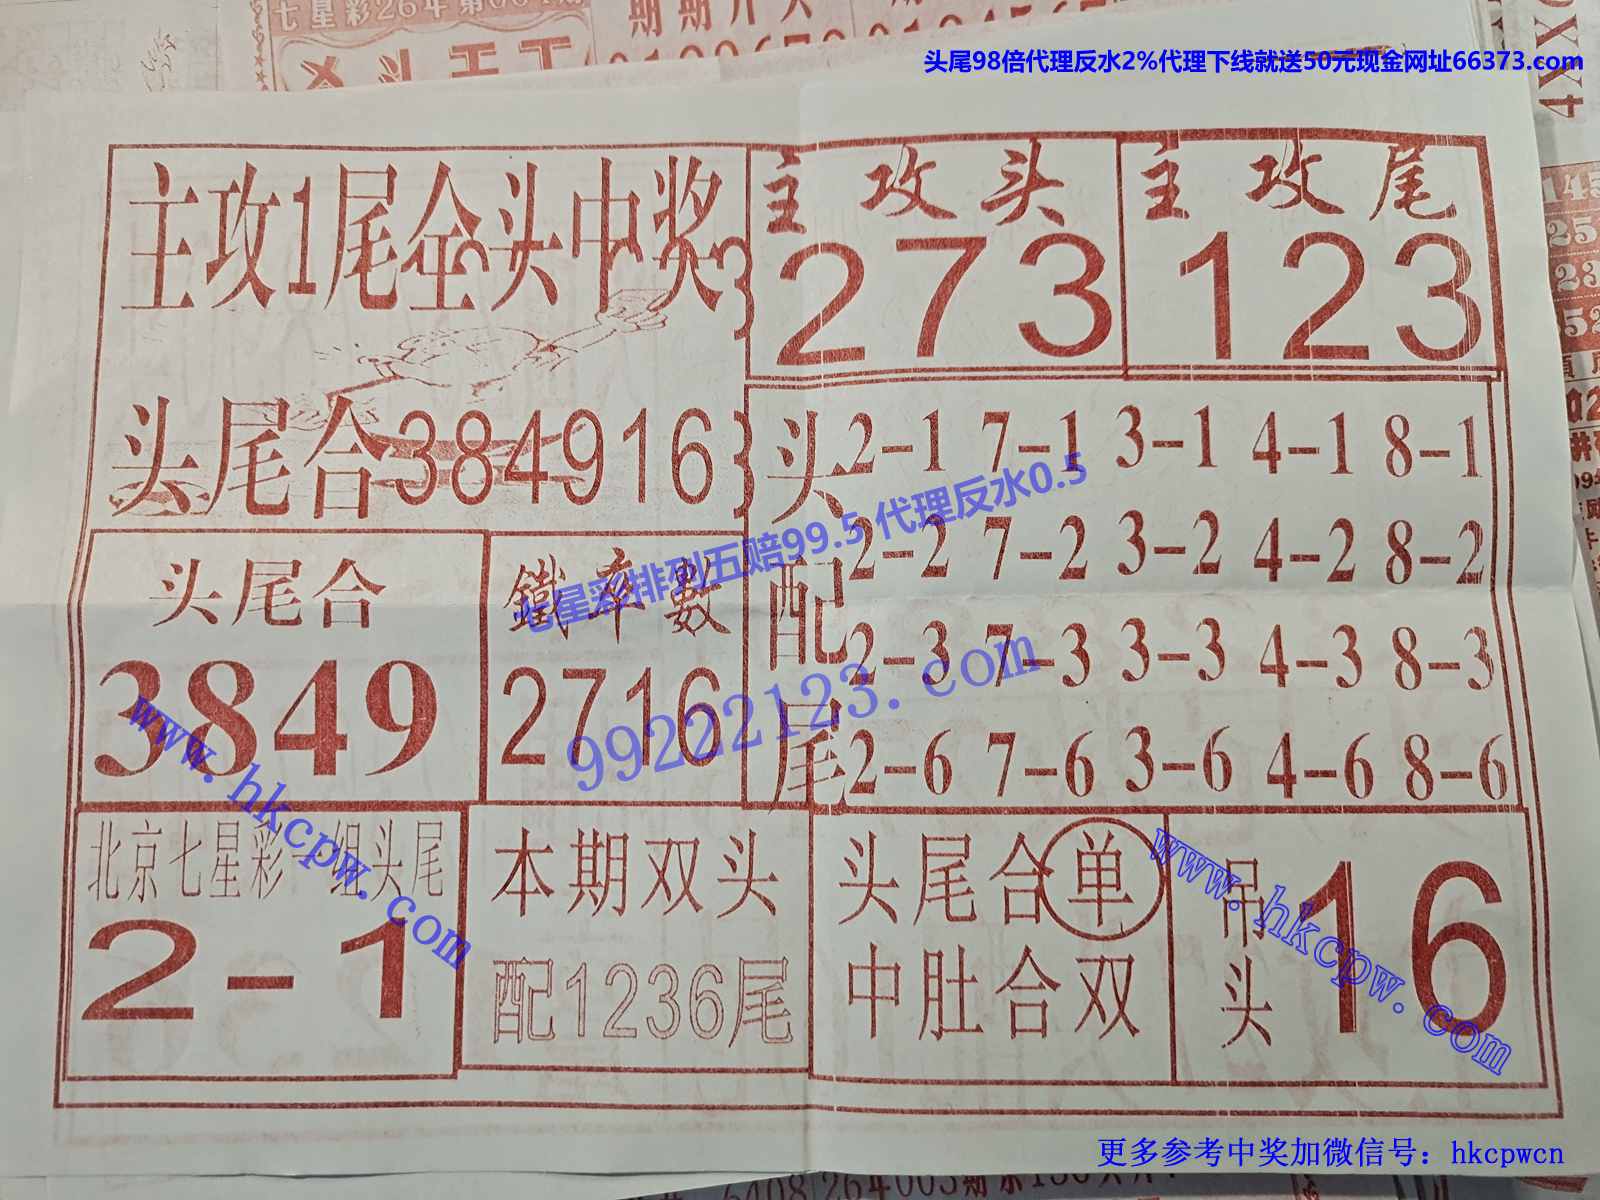 七星彩26年第
期期开
头尾98倍代理反水2%代理下线就送50元现金网址66373.com
4XXX
主攻1尾全头中奖
主攻头
273
主攻尾
123
头尾合384916
头尾合
3849
鐵率數
2716
头配尾
2-1 7-1 3-1 4-1 8-1
2-2 7-2 3-2 4-2 8-2
2-3 7-3 3-3 4-3 8-3
2-6 7-6 3-6 4-6 8-6
七星彩排列五赔99.5 代理反水0.5
99222123.com
www.hkcpw.com
北京七星彩一组头尾
2-1
本期双头
配1236尾
头尾合单
中肚合双
吊头
16
www.hkcpw.com
更多参考中奖加微信号：hkcpwcn